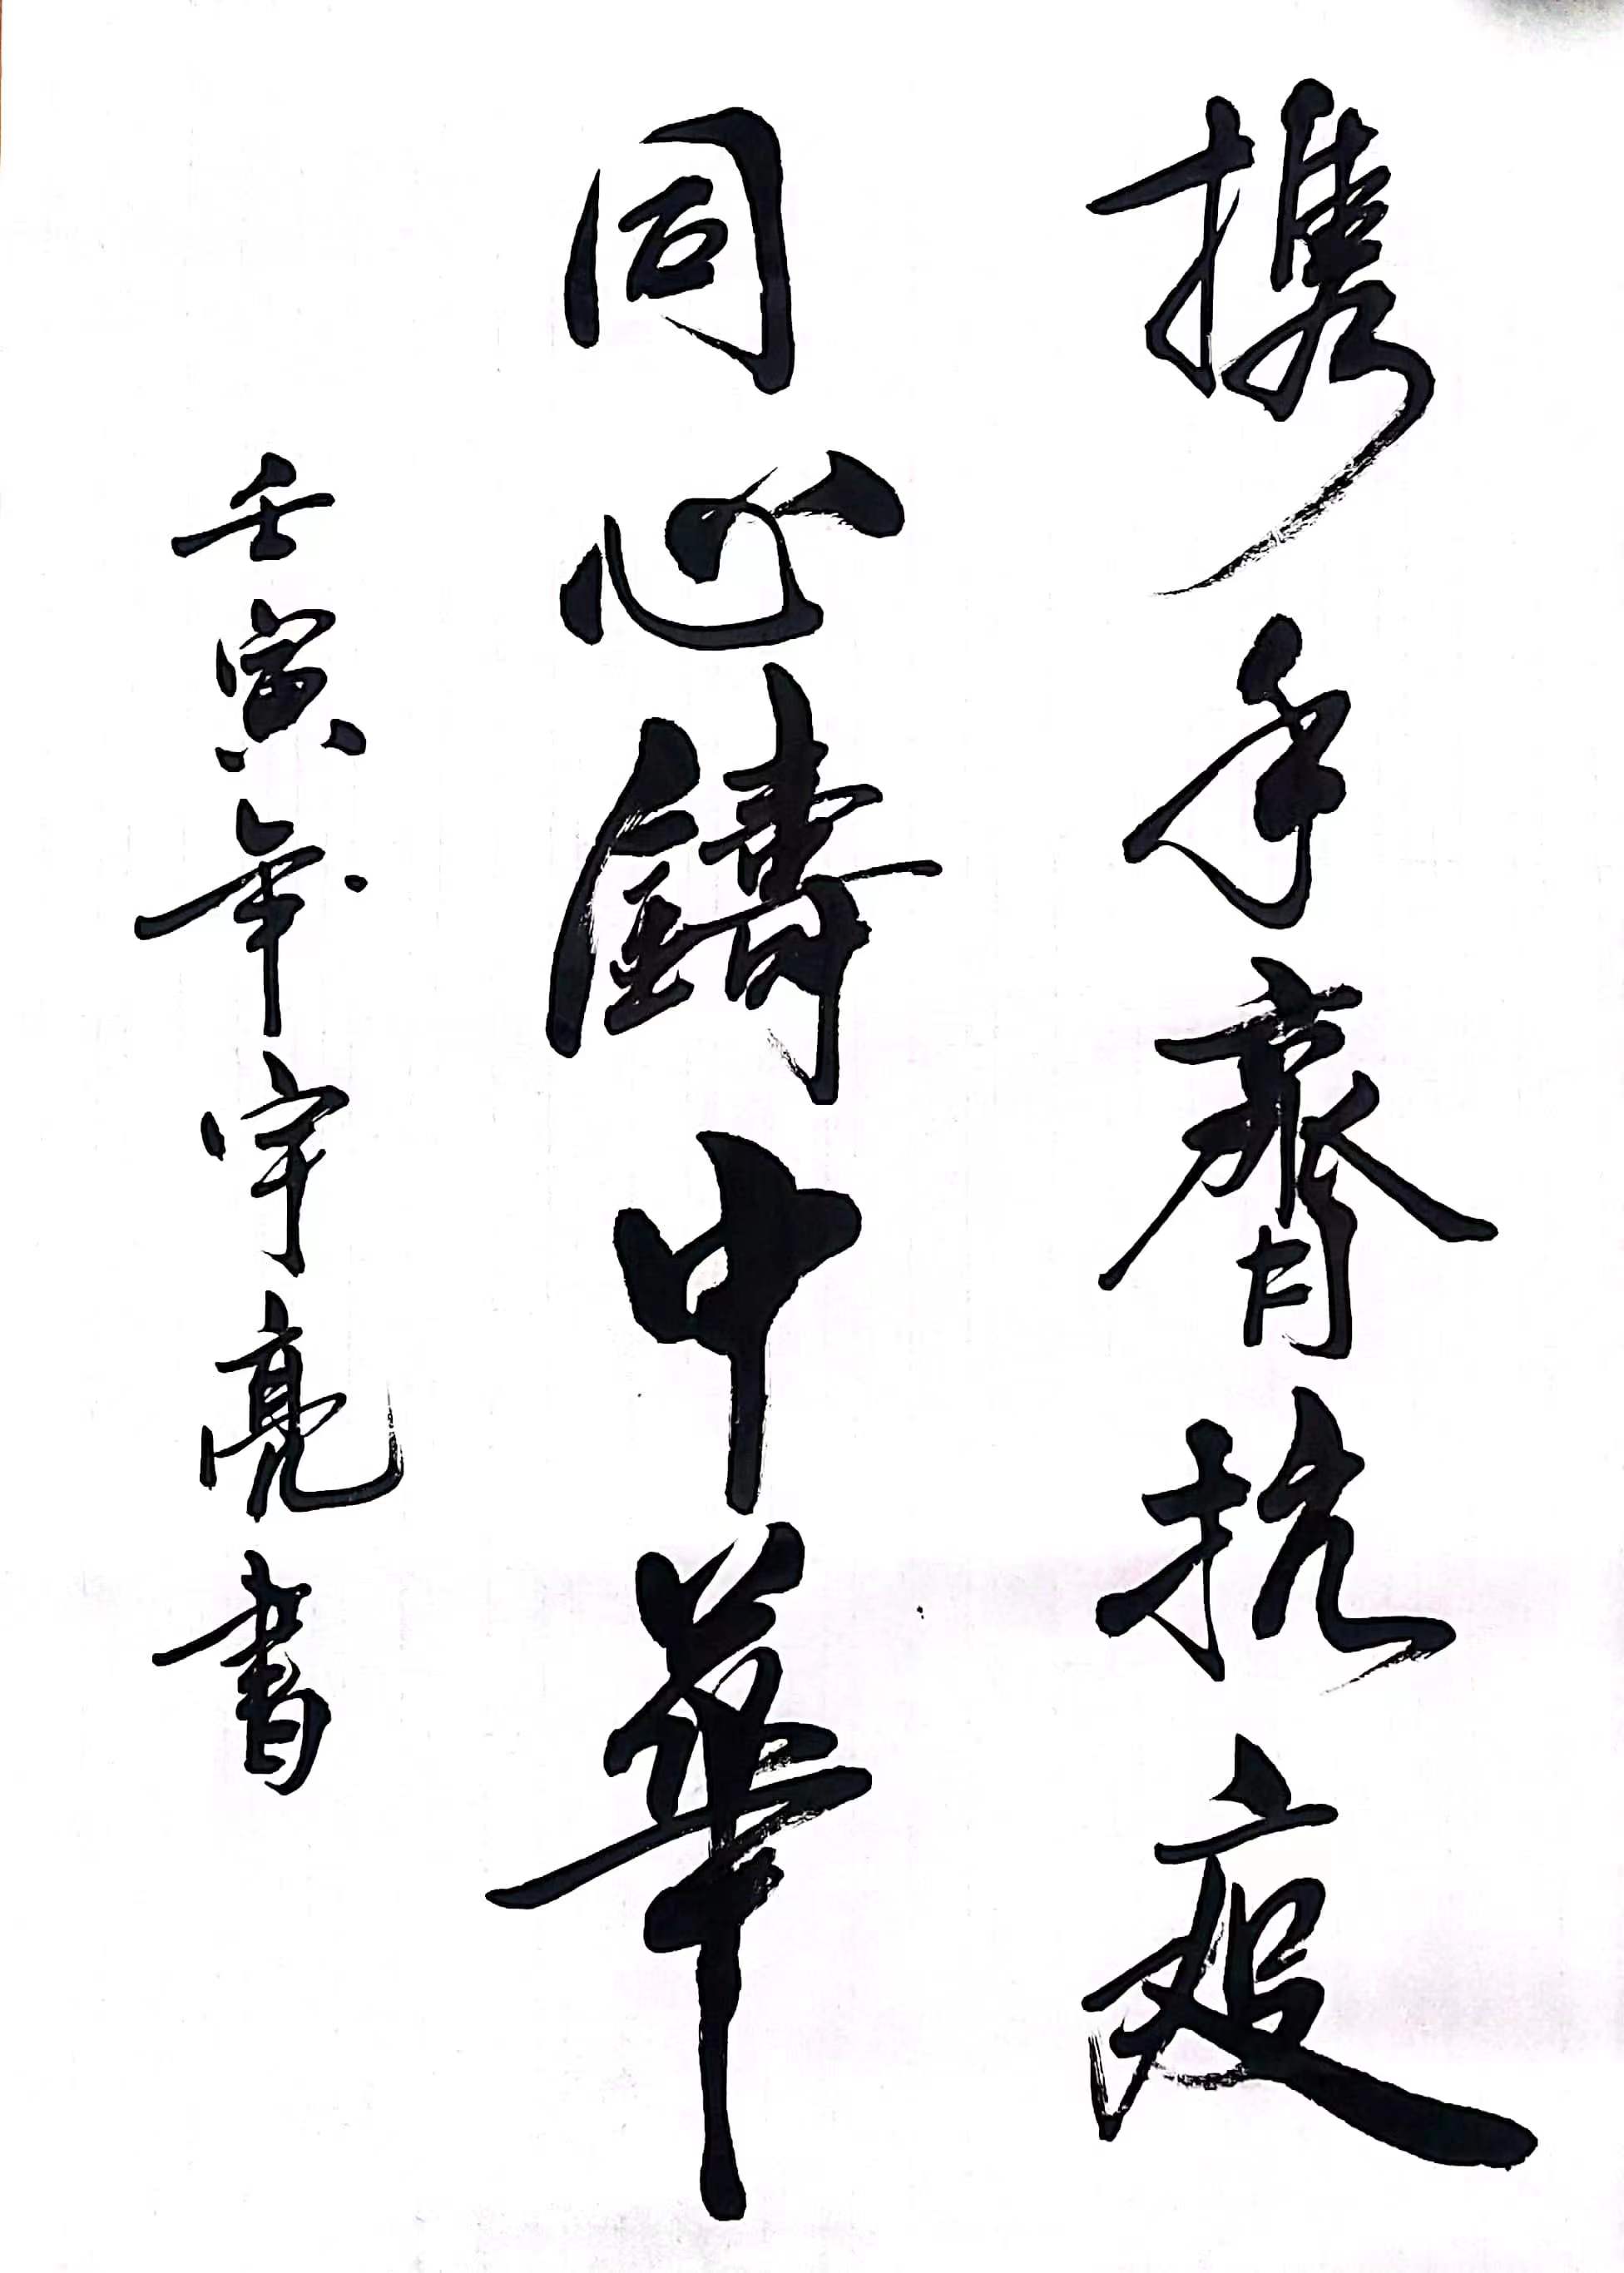 携手齊抗疫
同心鑄中華
壬寅年宇亮書